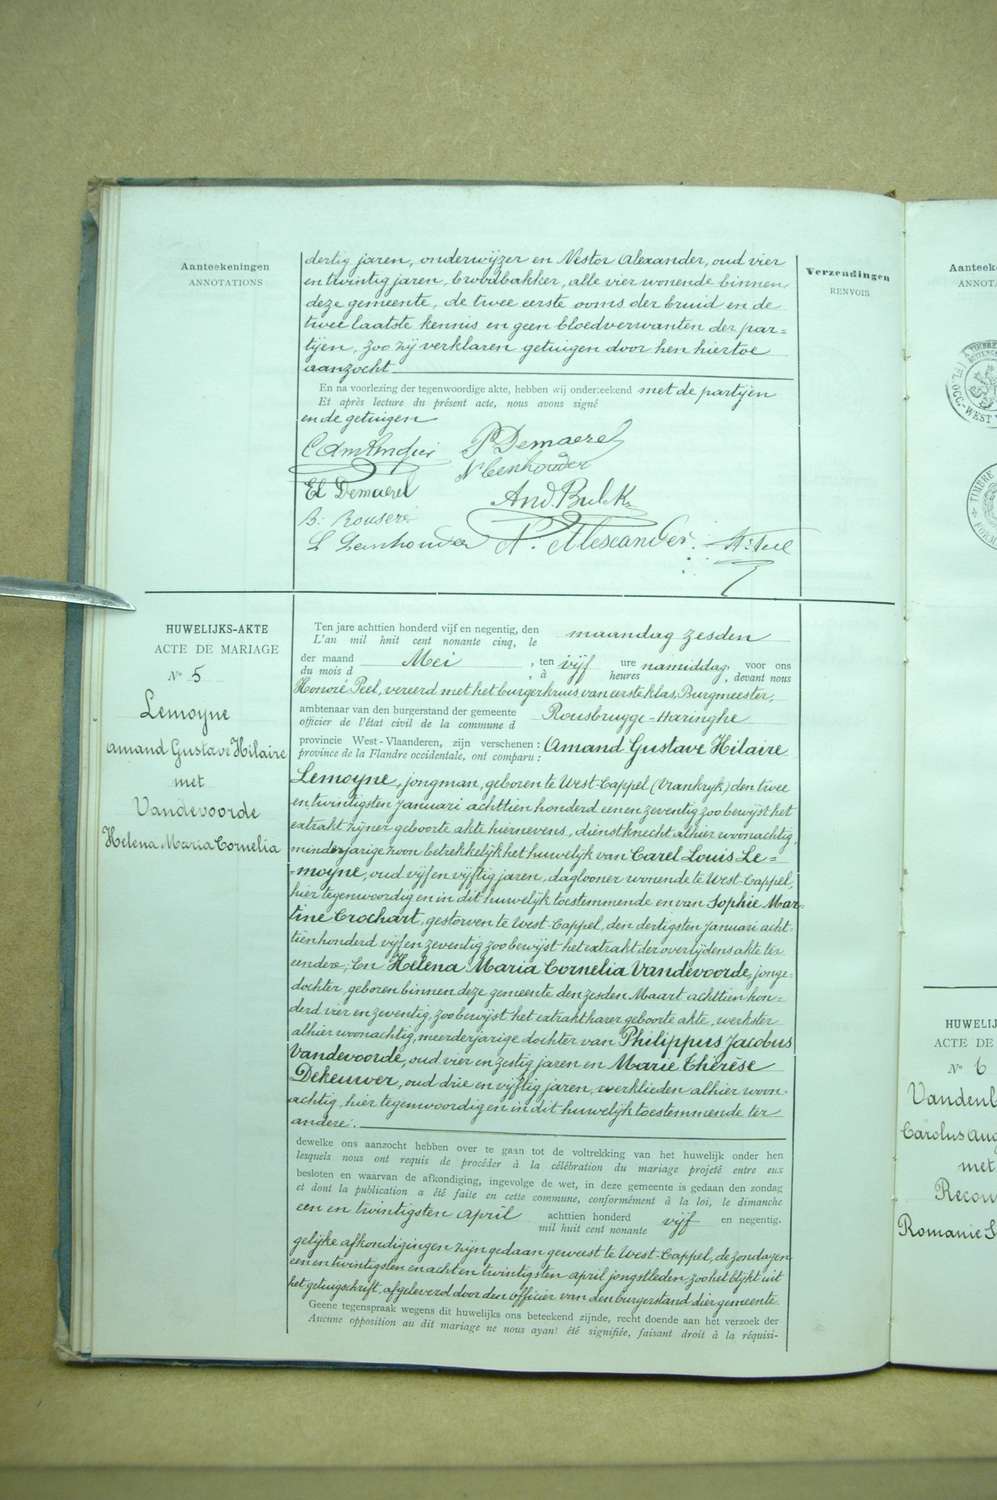 Aanteekeningen
ANNOTATIONS
Verzendingen
RENVOIS
dertig jaren, onderwijzer en Nestor Alexander, oud vier
en twintig jaren, broodbakker, alle vier wonende binnen
deze gemeente, de twee eerste ooms der bruid en de
twee laatste kennis en geen bloedverwanten der par=
tijen, zoo zij verklaren getuigen door hen hiertoe
aanzocht
En na voorlezing der tegenwoordige akte, hebben wij onderteekend met de partijen
Et après lecture du présent acte, nous avons signé
en de getuigen
P Demaerel
El Demaerel
And. Bulck
L Leenhouder N. Alexander
HUWELIJKS-AKTE
ACTE DE MARIAGE
Nr 5
Lemoyne
Amand Gustave Hilaire
met
Vandevoorde
Helena Maria Cornelia
Ten jare achttien honderd vijf en negentig, den maandag zesden
L'an mil huit cent nonante cinq, le
der maand Mei , ten vijf ure namiddag, voor ons
du mois d , à heures , devant nous
Honoré Peel, vereerd met het burgerkruis van eerste klas, Burgmeester,
ambtenaar van den burgerstand der gemeente Rousbrugge-Haringhe
officier de l'état civil de la commune d
provincie West-Vlaanderen, zijn verschenen : Amand Gustave Hilaire
province de la Flandre occidentale, ont comparu :
Lemoyne, jongman, geboren te West-Cappel (Vrankryk) den twee
en twintigsten Januari achttien honderd een en zeventig zoo bewijst het
extrakt zijner geboorte akte hiernevens, dienstknecht alhier woonachtig,
minderjarige zoon betrekkelijk het huwelyk van Carel Louis Le=
moyne, oud vijf en vijftig jaren, daglooner wonende te West-Cappel,
hier tegenwoordig en in dit huwelyk toestemmende en van Sophie Mar=
tine Crochart, gestorven te West-Cappel, den dertigsten Januari acht-
tien honderd vijf en zeventig zoo bewijst het extrakt der overlijdens akte ter
eendere; En Helena Maria Cornelia Vandevoorde, jonge-
dochter, geboren binnen deze gemeente den zesden Maart achttien hon=
derd vier en zeventig, zoo bewijst het extrakt harer geboorte akte, werkster
alhier woonachtig, meerderjarige dochter van Philippus Jacobus
Vandevoorde, oud vier en zestig jaren en Marie Thérèse
Dekeuwer, oud drie en vijftig jaren, werklieden alhier woon-
achtig, hier tegenwoordig en in dit huwelijk toestemmende ter
andere.
dewelke ons aanzocht hebben over te gaan tot de voltrekking van het huwelijk onder hen
lesquels nous ont requis de procéder à la célébration du mariage projeté entre eux
besloten en waarvan de afkondiging, ingevolge de wet, in deze gemeente is gedaan den zondag
et dont la publication a été faite en cette commune, conformément à la loi, le dimanche
een en twintigsten April achttien honderd vijf en negentig.
mil huit cent nonante
gelijke afkondigingen zijn gedaan geweest te West-Cappel, de zondagen
een en twintigsten en acht en twintigsten april jongstleden, zoo het blijkt uit
het getuigschrift, afgeleverd door den officier van den burgerstand dier gemeente.
Geene tegenspraak wegens dit huwelijks ons beteekend zijnde, recht doende aan het verzoek der
Aucune opposition au dit mariage ne nous ayant été signifiée, faisant droit à la réquisi-
Aanteek
ANNOTA
HUWELIJ
ACTE DE
Nr 6
Vandenb
Carolus Aug
met
Recou
Romanie S